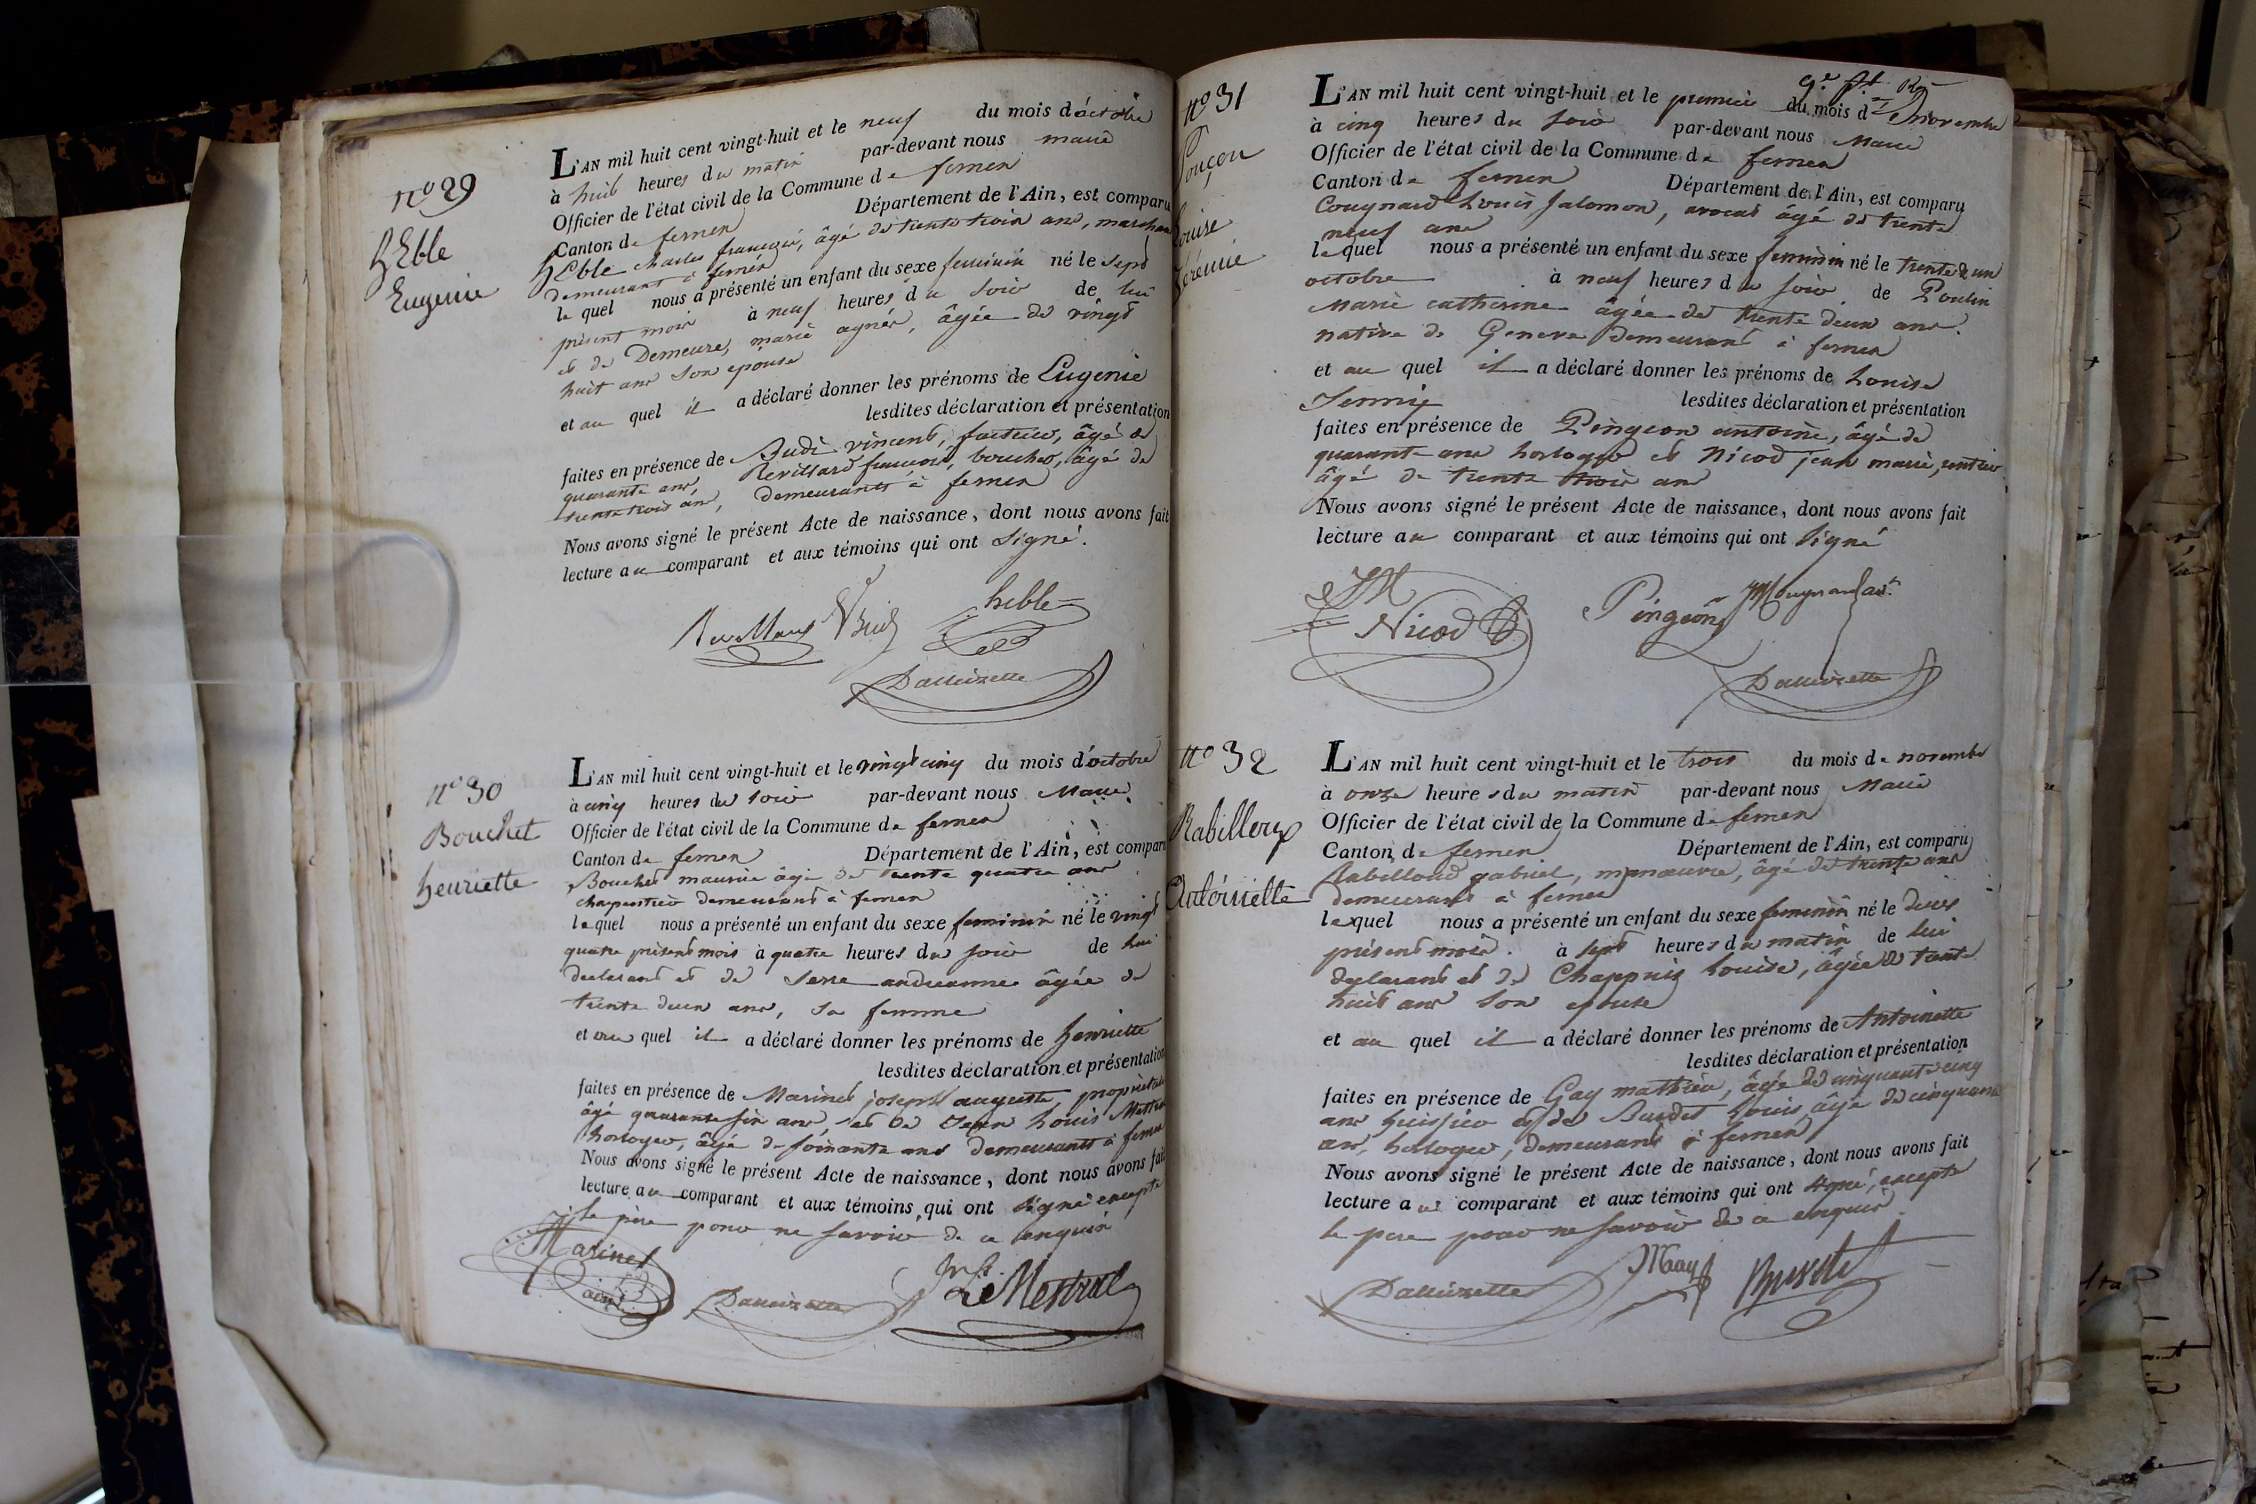 n.º 29
hEble
Eugenie
L'AN mil huit cent vingt-huit et le neuf du mois d'octobre
à huit heures du matin par-devant nous maire
Officier de l'état civil de la Commune de fernex
Canton de fernex Département de l'Ain, est comparu
hEble charles françois, âgé de trente trois ans, marchand
demeurant à fernex
lequel nous a présenté un enfant du sexe feminin né le sept
présent mois à neuf heures du soir de lui
et de Demeure, marie agnès, âgée de vingt
huit ans son épouse
et au quel il a déclaré donner les prénoms de Eugenie
lesdites déclaration et présentation
faites en présence de vincent, facteur, âgé de
quarante ans, Revillard françois, boucher, âgé de
trente trois ans, demeurants à fernex
Nous avons signé le présent Acte de naissance, dont nous avons fait
lecture au comparant et aux témoins qui ont signé.
heble
Dallizette
n.º 30
Bouchet
henriette
L'AN mil huit cent vingt-huit et le vingt cinq du mois d'octobre
à cinq heures du soir par-devant nous Maire
Officier de l'état civil de la Commune de fernex
Canton de fernex Département de l'Ain, est comparu
Bouchet maurice âgé de trente quatre ans
charpentier demeurant à fernex
lequel nous a présenté un enfant du sexe feminin né le vingt
quatre présent mois à quatre heures du soir de lui
declarant et de Serre andreanne âgée de
trente deux ans, sa femme
et au quel il a déclaré donner les prénoms de henriette
lesdites déclaration et présentation
faites en présence de Marinet joseph auguste, propriétaire
âgé quarante six ans, et de Jean Louis
horloger, âgé de soixante ans demeurants à fernex
Nous avons signé le présent Acte de naissance, dont nous avons fait
lecture au comparant et aux témoins qui ont signé excepté
le père pour ne savoir de ce enquis
Marinet
ainé
Dallizette
Le Mestral
n.º 31
Pouçon
Louise
L'AN mil huit cent vingt-huit et le premier du mois de novembre
à cinq heures du soir par-devant nous Maire
Officier de l'état civil de la Commune de fernex
Canton de fernex Département de l'Ain, est comparu
Cougnard Louis Salomon, avocat âgé de trente
neuf ans
lequel nous a présenté un enfant du sexe feminin né le trente & un
octobre à neuf heures du soir de Poulin
Marie catherine âgée de trente deux ans.
native de Geneve demeurant à fernex
et au quel il a déclaré donner les prénoms de Louise
Jenny
lesdites déclaration et présentation
faites en présence de Pingeon antoine, âgé de
quarante ans horloger et Nicod jean marie, rentier
âgé de trente trois ans
Nous avons signé le présent Acte de naissance, dont nous avons fait
lecture au comparant et aux témoins qui ont signé
JM
Nicod
Pingeon
Dallizette
n.º 32
Rabilloux
Antoinette
L'AN mil huit cent vingt-huit et le trois du mois de novembre
à onze heures du matin par-devant nous Maire
Officier de l'état civil de la Commune de fernex
Canton de fernex Département de l'Ain, est comparu
Rabilloud gabriel, manœuvre, âgé de trente ans
demeurant à fernex
lequel nous a présenté un enfant du sexe feminin né le deux
présent mois. à sept heures du matin de lui
declarant et de Chappuis Louise, âgée de trente
huit ans son epouse
et au quel il a déclaré donner les prénoms de Antoinette
lesdites déclaration et présentation
faites en présence de Gay mathieu, âgé de cinquante cinq
ans huissier et de Burdet Louis âgé de cinquante
ans, horloger, demeurant à fernex
Nous avons signé le présent Acte de naissance, dont nous avons fait
lecture au comparant et aux témoins qui ont signé, excepté
le pere pour ne savoir de ce enquis
Dallizette
MGay
Burdet